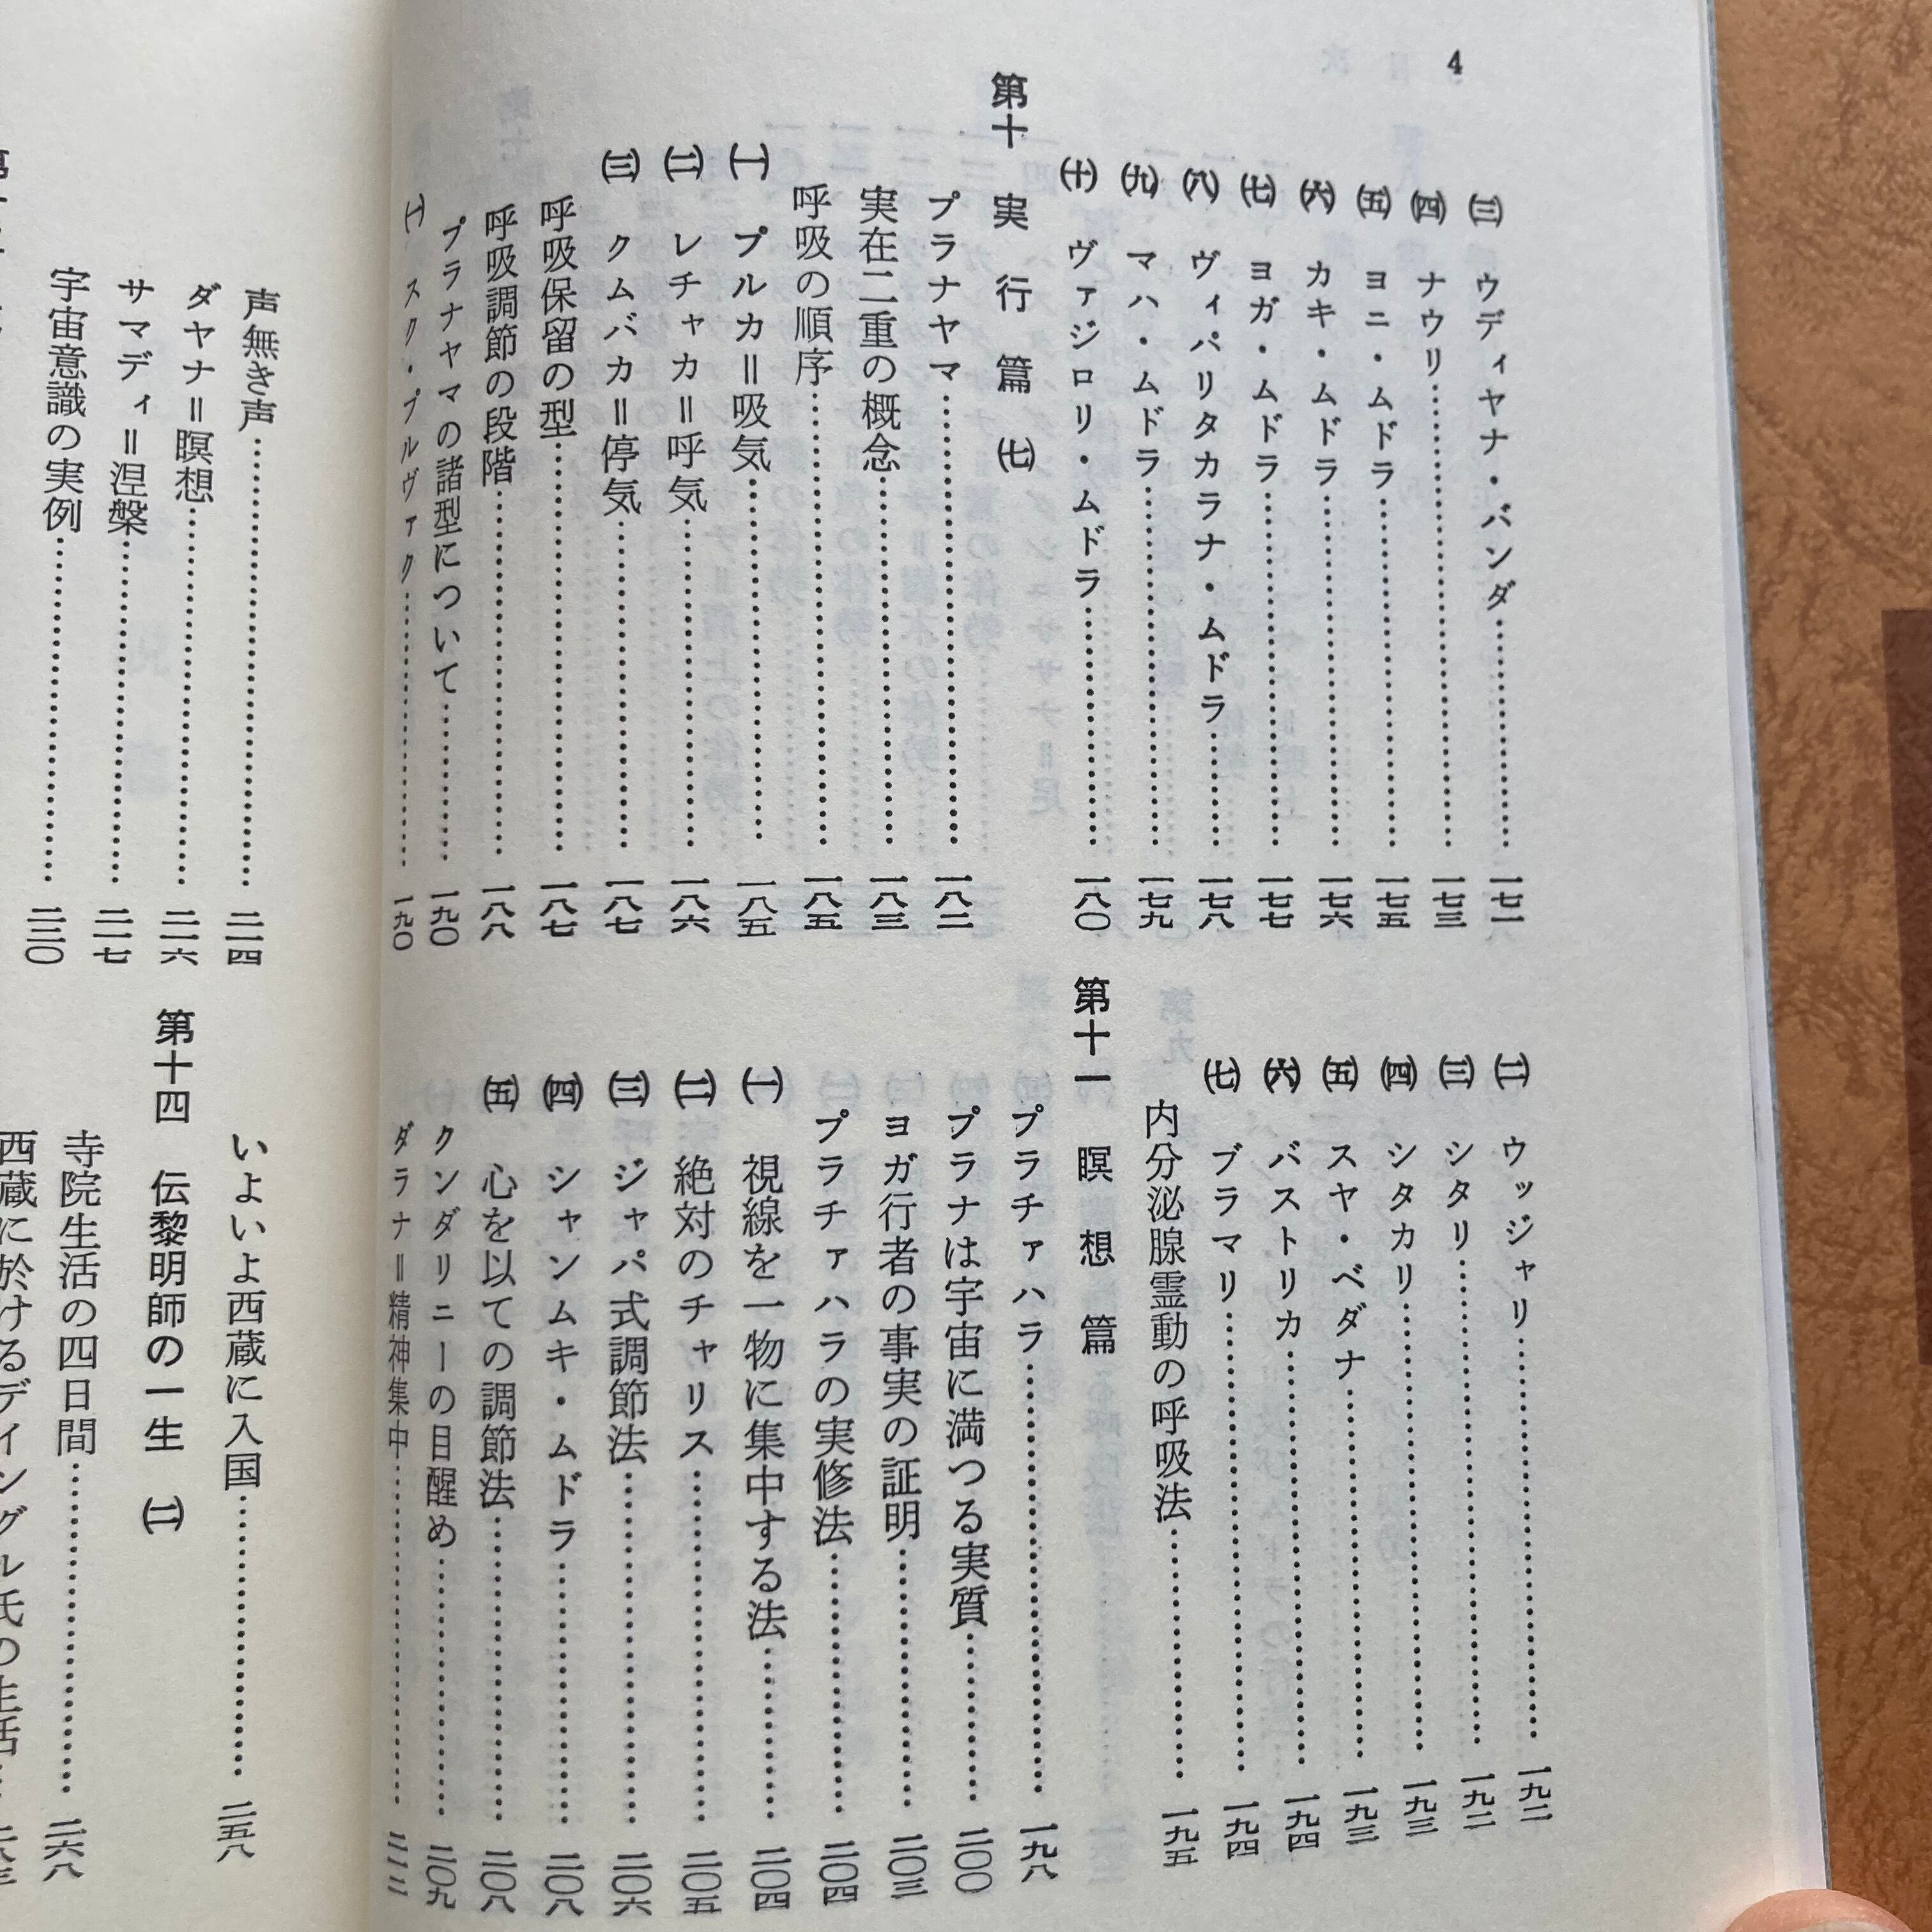 4
㈢ ウディヤナ・バンダ……一七一
㈣ ナウリ……一七三
㈤ ヨニ・ムドラ……一七五
㈥ カキ・ムドラ……一七六
㈦ ヨガ・ムドラ……一七七
㈧ ヴィパリタカラナ・ムドラ……一七八
㈨ マハ・ムドラ……一七九
㈩ ヴァジロリ・ムドラ……一八〇
第十 実行篇 ㈦
プラナヤマ……一八二
実在二重の概念……一八三
呼吸の順序……一八五
㈠ プルカ=吸気……一八五
㈡ レチャカ=呼気……一八六
㈢ クムバカ=停気……一八七
呼吸保留の型……一八七
呼吸調節の段階……一八八
プラナヤマの諸型について……一九〇
㈠ スク・プルヴァク……一九〇
㈡ ウッジャリ……一九二
㈢ シタリ……一九二
㈣ シタカリ……一九三
㈤ スヤ・ベダナ……一九三
㈥ バストリカ……一九四
㈦ ブラマリ……一九四
内分泌腺霊動の呼吸法……一九五
第十一 瞑想篇
プラチァハラ……一九八
プラナは宇宙に満つる実質……二〇〇
ヨガ行者の事実の証明……二〇三
プラチァハラの実修法……二〇四
㈠ 視線を一物に集中する法……二〇四
㈡ 絶対のチャリス……二〇五
㈢ ジャパ式調節法……二〇六
㈣ シャンムキ・ムドラ……二〇八
㈤ 心を以ての調節法……二〇八
クンダリニーの目醒め……二〇九
ダラナ=精神集中……二一二
声無き声……二一四
ダヤナ=瞑想……二一六
サマディ=涅槃……二一七
宇宙意識の実例……二二〇
いよいよ西蔵に入国……二五八
第十四 伝黎明師の一生 ㈡
寺院生活の四日間……二六八
西蔵に於けるディングル氏の生活……